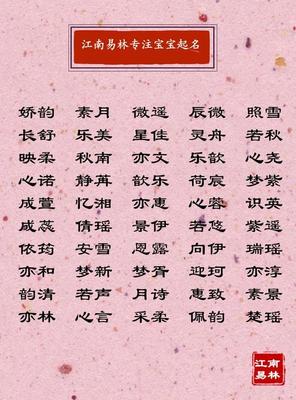 江南易林专注宝宝起名
娇韵 素月 微遥 辰微 照雪
长舒 乐美 星佳 灵舟 若秋
映柔 秋南 亦文 乐歆 心尧
心诺 静苒 歆乐 荷宸 梦紫
成萱 忆湘 亦惠 心蓉 识英
咸蕊 倩瑶 景伊 若悠 紫遥
依筠 安雪 恩露 向伊 瑞瑶
亦和 梦新 梦胥 迎珂 亦淳
韵清 若声 月诗 惠致 素景
亦林 心言 采柔 佩韵 楚瑶
江南
易林